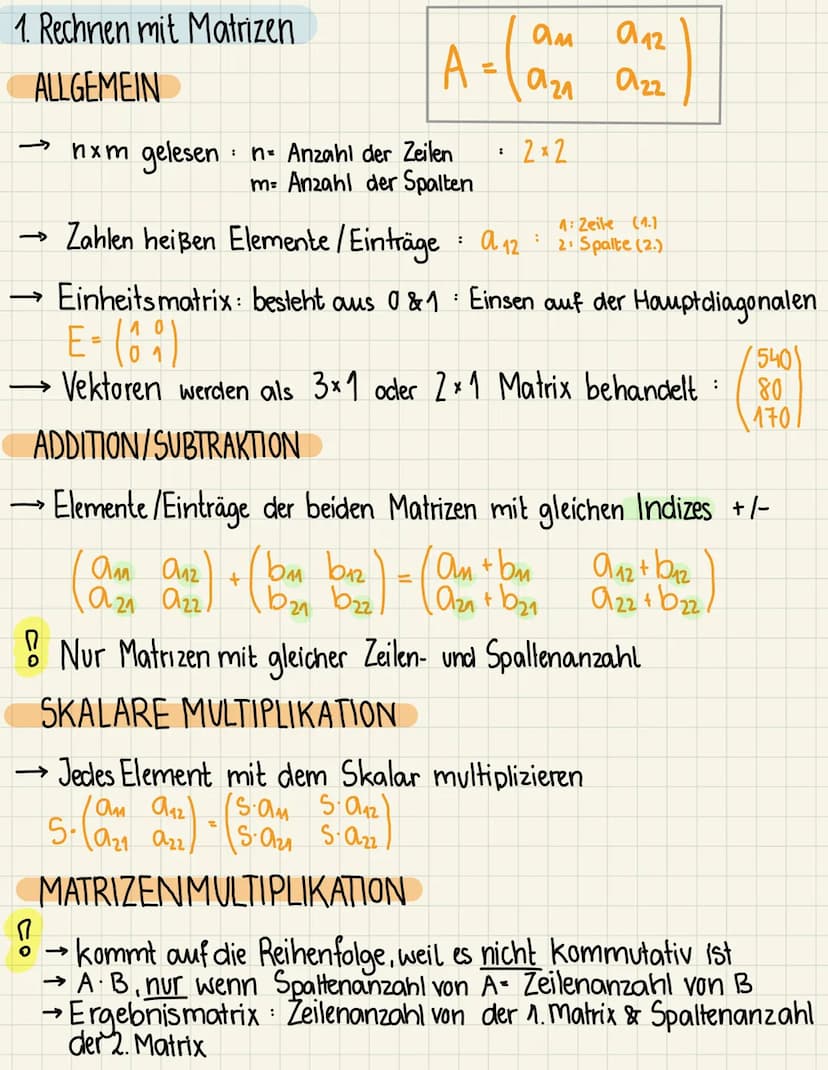 1. Rechnen mit Matrizen
A = ( a11 a12
a21 a22 )
ALLGEMEIN
→ nxm gelesen : n= Anzahl der Zeilen : 2×2
m= Anzahl der Spalten
→ Zahlen heißen Elemente/Einträge : a12 : 1: Zeile (1.)
2: Spalte (2.)
→ Einheitsmatrix: besteht aus 0 & 1 : Einsen auf der Hauptdiagonalen
E = ( 1 0
0 1 )
→ Vektoren werden als 3×1 oder 2×1 Matrix behandelt : ( 540
80
170 )
ADDITION/SUBTRAKTION
→ Elemente/Einträge der beiden Matrizen mit gleichen Indizes +/-
( a11 a12 ) + ( b11 b12 ) = ( a11 + b11 a12 + b12 )
( a21 a22 ) ( b21 b22 ) ( a21 + b21 a22 + b22 )
! Nur Matrizen mit gleicher Zeilen- und Spaltenanzahl
SKALARE MULTIPLIKATION
→ Jedes Element mit dem Skalar multiplizieren
S· ( a11 a12 ) = ( S·a11 S·a12 )
( a21 a22 ) ( S·a21 S·a22 )
MATRIZENMULTIPLIKATION
! → kommt auf die Reihenfolge, weil es nicht kommutativ ist
→ A·B, nur wenn Spaltenanzahl von A = Zeilenanzahl von B
→ Ergebnismatrix : Zeilenanzahl von der 1. Matrix & Spaltenanzahl
der 2. Matrix